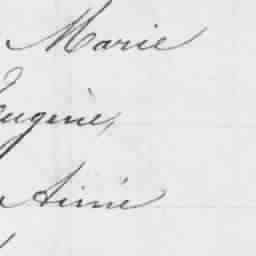 Marie
Eugène,
Aimé